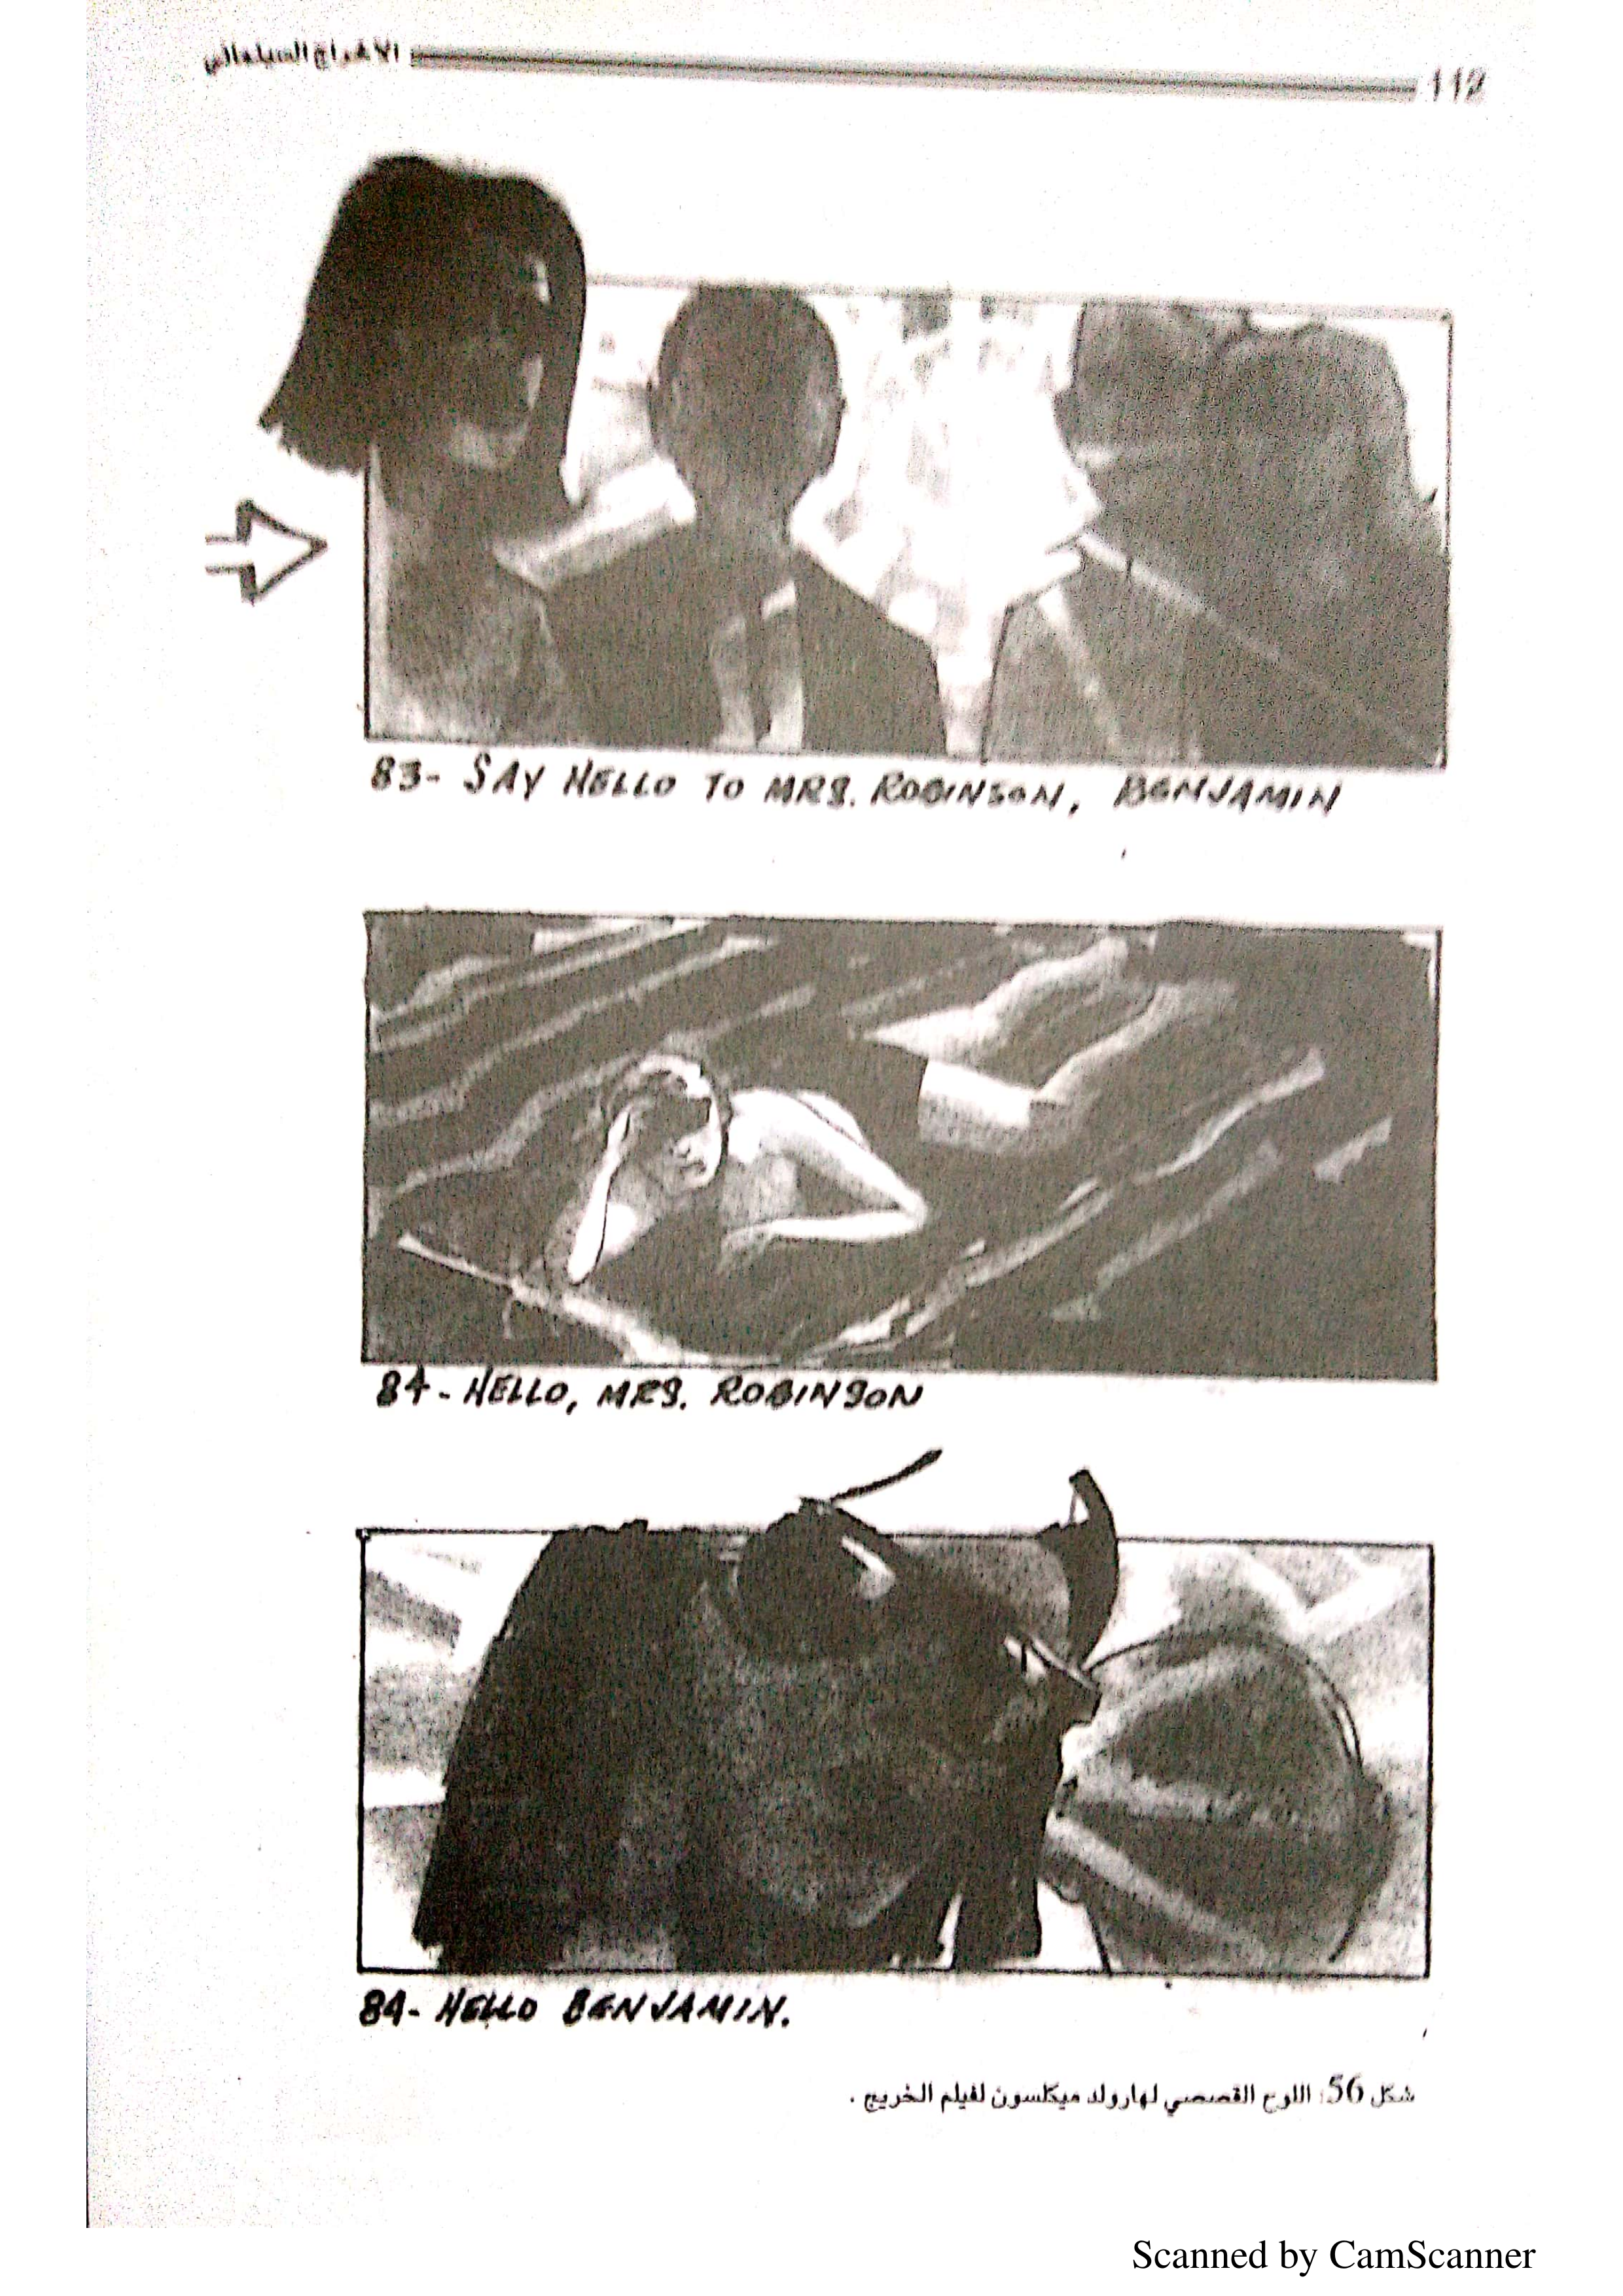 112
الاخراج السينمائي
83- SAY HELLO TO MRS. ROBINSON, BENJAMIN
84- HELLO, MRS. ROBINSON
84- HELLO BENJAMIN.
شكل 56: اللوح القصصي لهارولد ميكلسون لفيلم الخريج .
Scanned by CamScanner